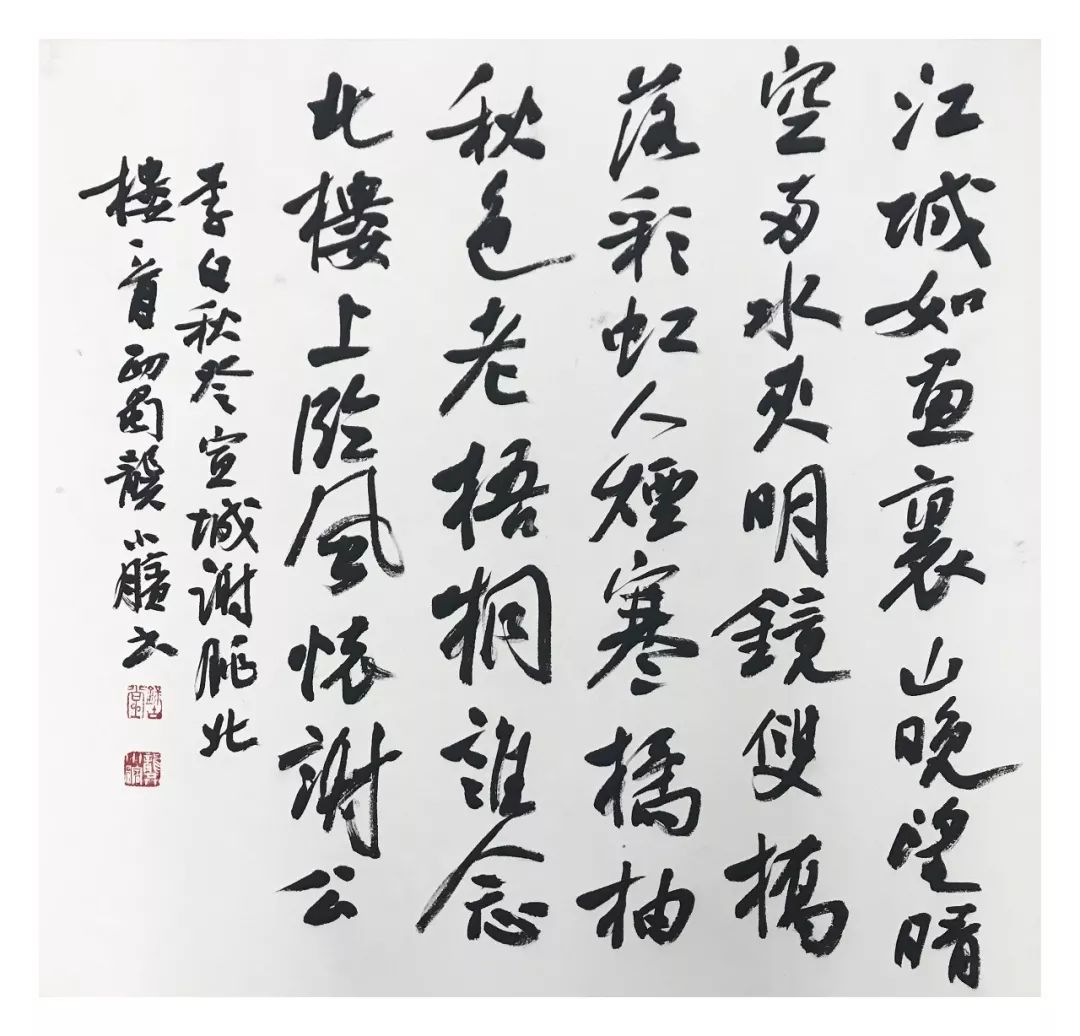 江城如畫裏山晚望晴
空兩水夾明鏡雙橋
落彩虹人煙寒橘柚
秋色老梧桐誰念
北樓上臨風懷謝公
李白秋登宣城謝朓北
樓一首西蜀龔小臏书